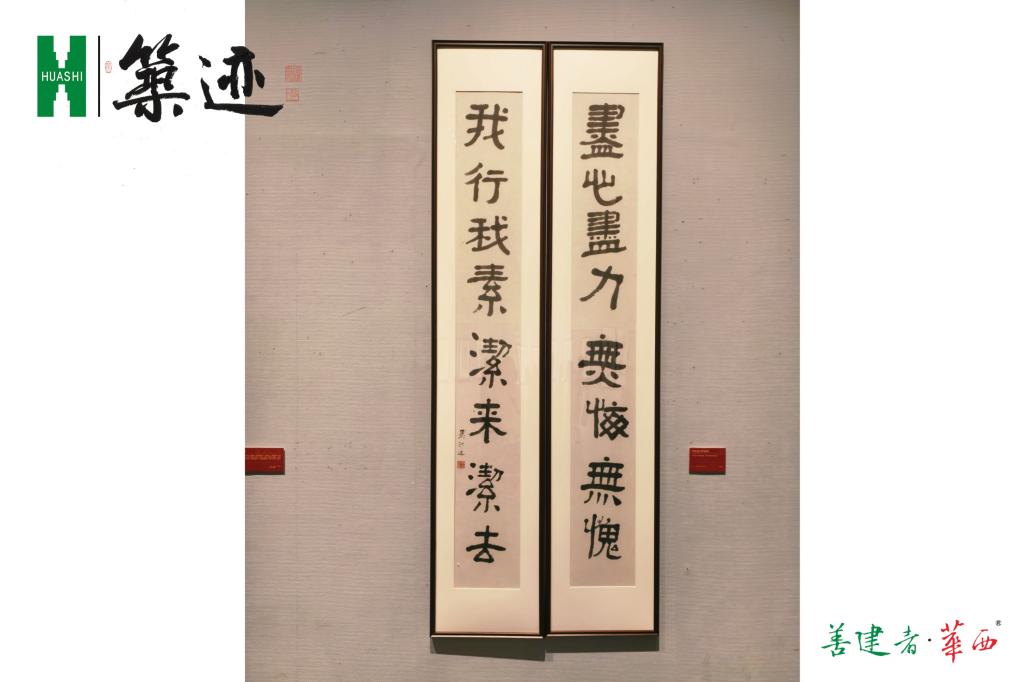 HUASHI
築迹
盡心盡力無悔無愧
我行我素潔来潔去
善建者·華西